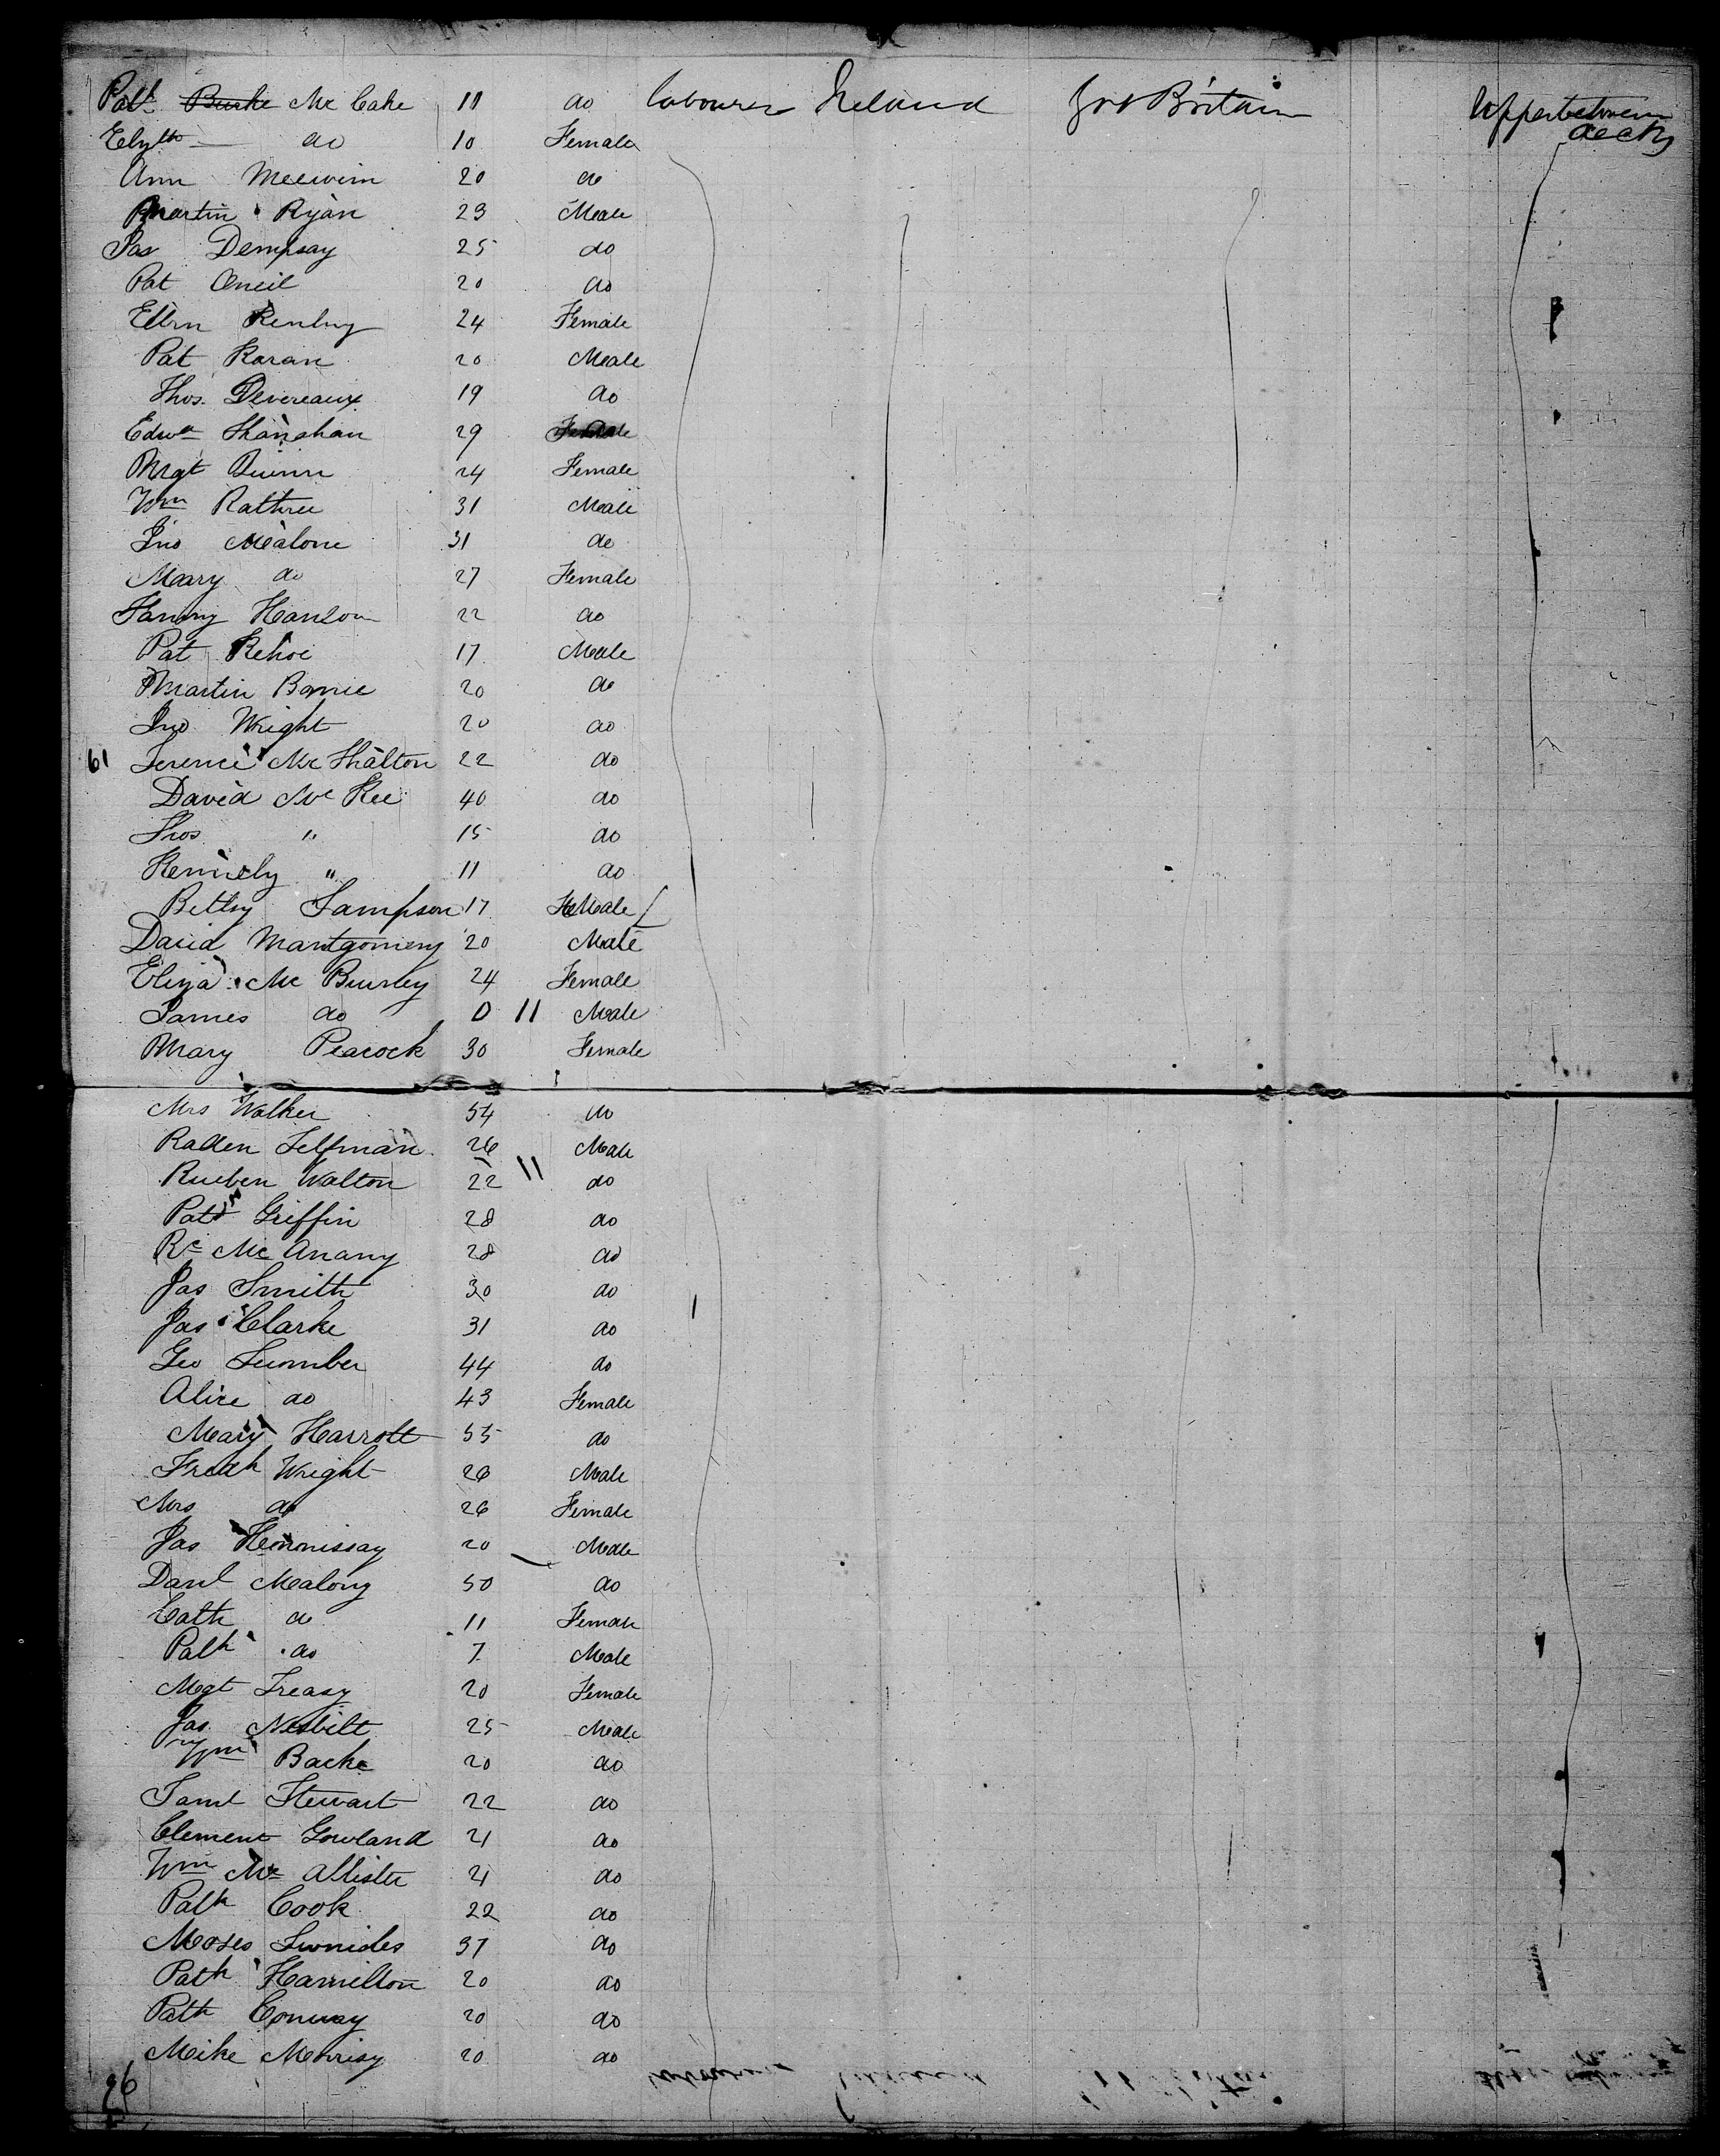 Patk Burke Mc Cabe 11 do labourer Ireland Grt Britain Upper between decks
Elizth do 10 Female
Ann 20 do
Martin Ryan 23 Male
Jas Dempsay 25 do
Pat Oneil 20 do
Ellen 24 Female
Pat Karan 20 Male
Thos. Devereaux 19 do
Edwd Shanahan 29
Mgt Quinn 24 Female
Wm Rathree 31 Male
Jno Malone 31 do
Mary do 27 Female
Fanny Hanlon 22 do
Pat Kehoe 17 Male
Martin 20 do
Jno Wright 20 do
61 Terence Mc Shalton 22 do
David Mc Kee 40 do
Thos " 15 do
Kennedy " 11 do
Betsy Sampson 17 FeMale
David Montgomery 20 Male
Eliza Mc Burney 24 Female
James do 0 11 Male
Mary Peacock 30 Female
Mrs Walker 54 do
Selfman 26 Male
Rueben Walton 22 11 do
Patk Griffin 28 do
Rd Mc Anany 28 do
Jas Smith 30 do
Jas Clarke 31 do
Geo 44 do
Alice do 43 Female
Mary Harrott 55 do
Fredk Wright 26 Male
Mrs do 26 Female
Jas Hennissay 20 Male
Danl Malony 50 do
Cath do 11 Female
Patk do 7 Male
Mgt Treasy 20 Female
Jas Nesbitt 25 Male
Wm Backe 20 do
Saml Stewart 22 do
Clement Gowland 21 do
Wm Mc Allister 21 do
Patk Cook 22 do
Moses 37 do
Patk Hamilton 20 do
Patk Conway 20 do
Mike 20 do
96